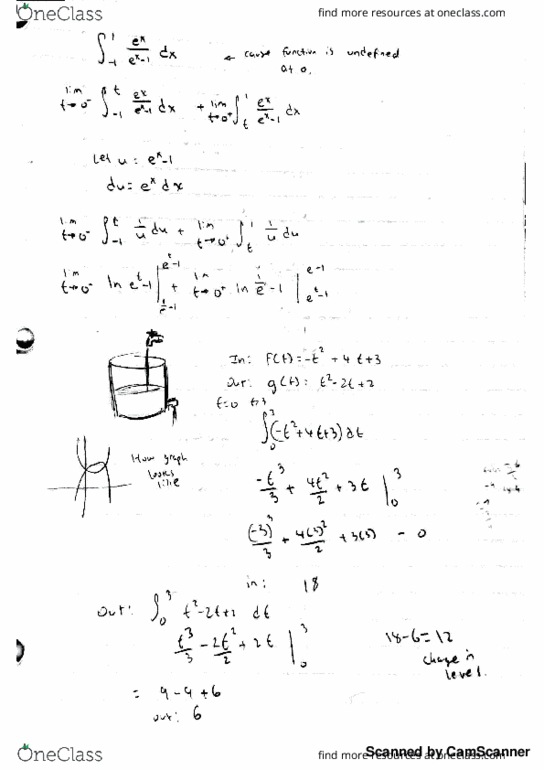 OneClass
find more resources at oneclass.com
∫_{-1}^{1} e^x/(e^x-1) dx ← cause function is undefined
at 0.
lim t→0⁻ ∫_{-1}^{t} e^x/(e^x-1) dx + lim t→0⁺ ∫_{t}^{1} e^x/(e^x-1) dx
Let u = e^x-1
du = e^x dx
lim t→0⁻ ∫_{-1}^{t} 1/u du + lim t→0⁺ ∫_{t}^{1} 1/u du
lim t→0⁻ ln e^t-1 | + lim t→0⁺ ln e^1-1 |_{e^t-1}^{e-1}
In: F(t) = -t² + 4t+3
Out: g(t): t²-2t+2
t=0
∫_0^3 (-t²+4t+3) dt
How graph
looks
like
-t³/3 + 4t²/2 + 3t |_0^3
(-3)³/3 + 4(3)²/2 + 3(3) - 0
in: 18
Out: ∫_0^3 t²-2t+2 dt
t³/3 - 2t²/2 + 2t |_0^3
18-6=12
change in
level.
= 9-9+6
out: 6
Scanned by CamScanner
OneClass
find more resources at oneclass.com